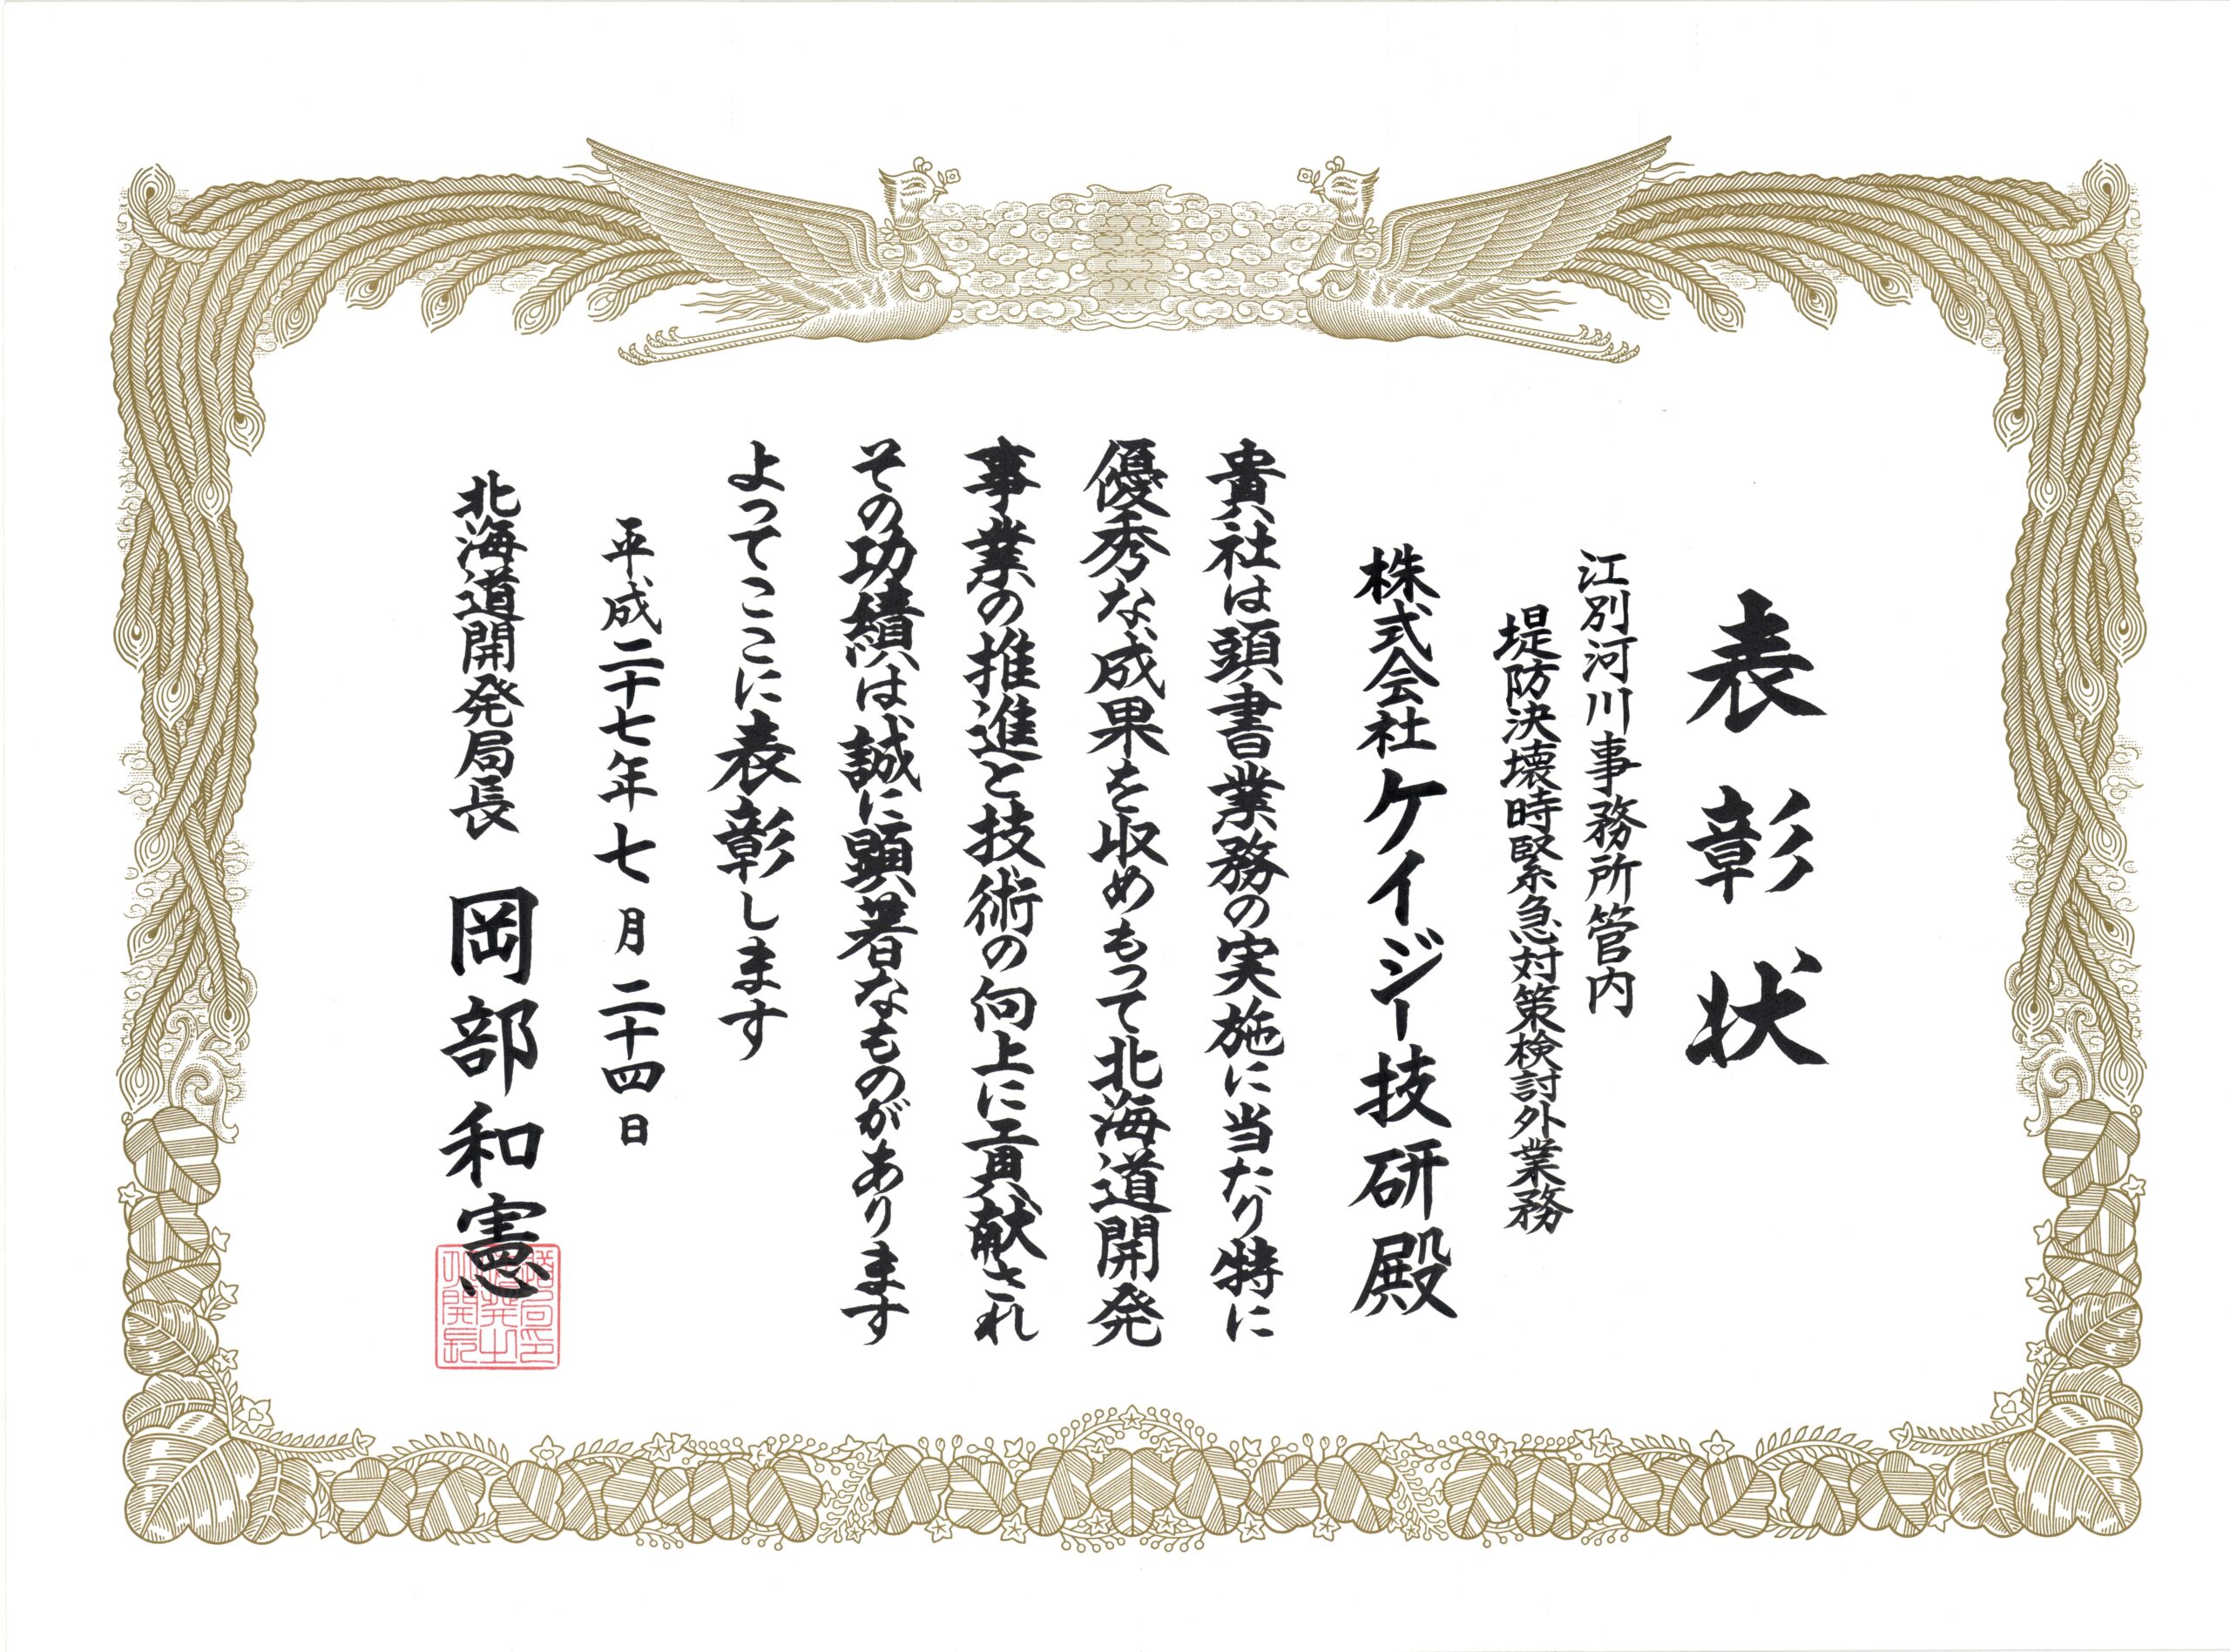 表彰状
江別河川事務所管内
堤防決壊時緊急対策検討外業務
株式会社ケイジー技研殿
貴社は頭書業務の実施に当たり特に
優秀な成果を収めもって北海道開発
事業の推進と技術の向上に貢献され
その功績は誠に顕著なものがあります
よってここに表彰します
平成二十七年七月二十四日
北海道開発局長 岡部和憲